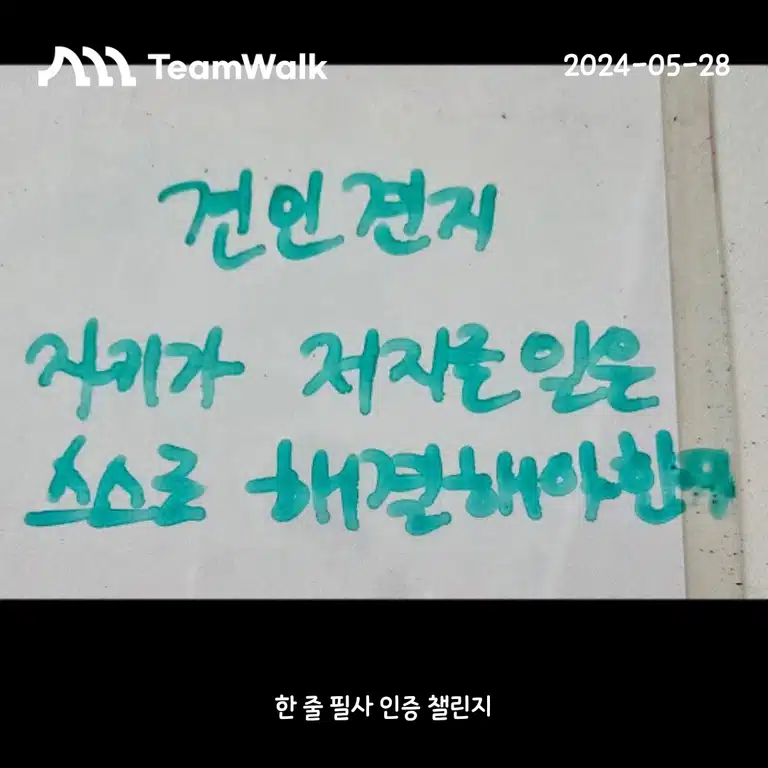 TeamWalk
2024-05-28
건인견지
자기가 저지른일은
스스로 해결해야한다
한 줄 필사 인증 챌린지